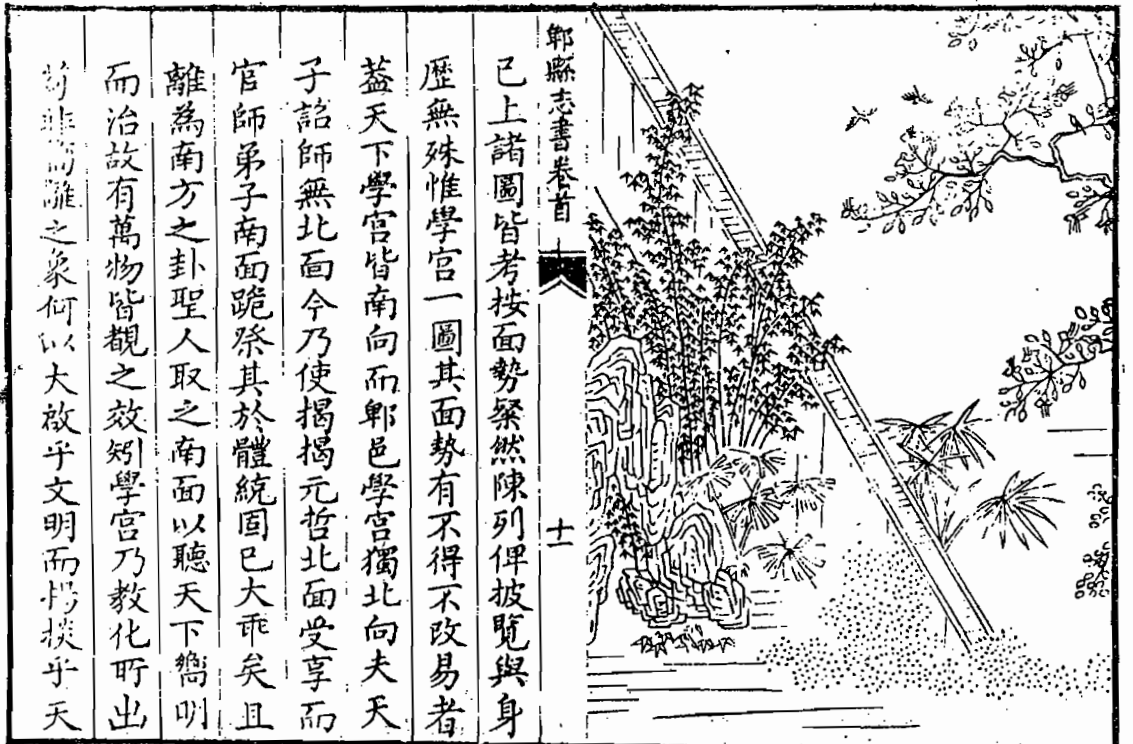 郫縣志書卷首
十一
已上諸圖皆考按面勢粲然陳列俾披覽與身
歷無殊惟學宮一圖其面勢有不得不改易者
葢天下學宮皆南向而郫邑學宮獨北向夫天
子詔師無北面今乃使揭揭元哲北面受享而
官師弟子南面跪祭其於體統固已大乖矣且
離為南方之卦聖人取之南面以聽天下嚮明
而治故有萬物皆覩之效矧學宮乃教化所出
離之象何以大啟乎文明而掞乎天